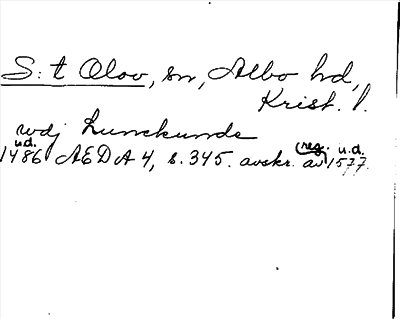 S:t Olov, sn, Albo hd,
Krist. l.
wdj Lunckunde
u.d. (reg. u.d.
1486 AEDA 4, s. 345. avskr. av 1577.